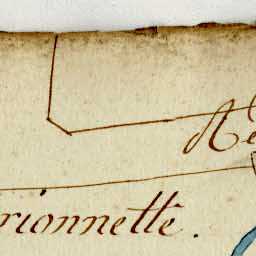 Ré
rionnette.